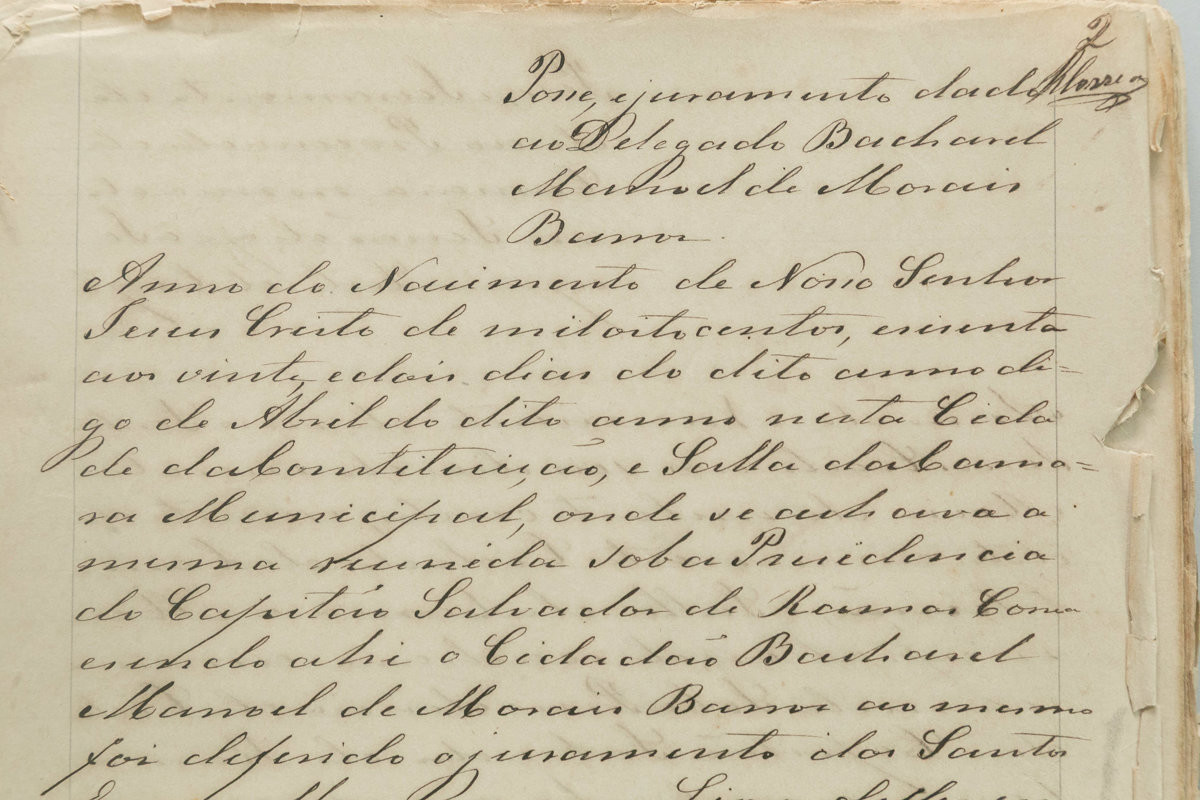 2
Posse, e juramento dado
ao Delegado Bacharel
Manoel de Morais
Barros
Anno do Nascimento de Nosso Senhor
Jesus Cristo de mil oitocentos, esesenta
aos vinte, edois dias do dito anno di=
go de Abril do dito anno nesta Cida
de daConstituição, e Salla daCama=
ra Municipal, onde se achava a
mesma reunida soba Presidencia
do Capitão Salvador de Ramos Correa
esendo ahi o Cidadão Bacharel
Manoel de Morais Barros ao mesmo
foi deferido ojuramento dos Santos